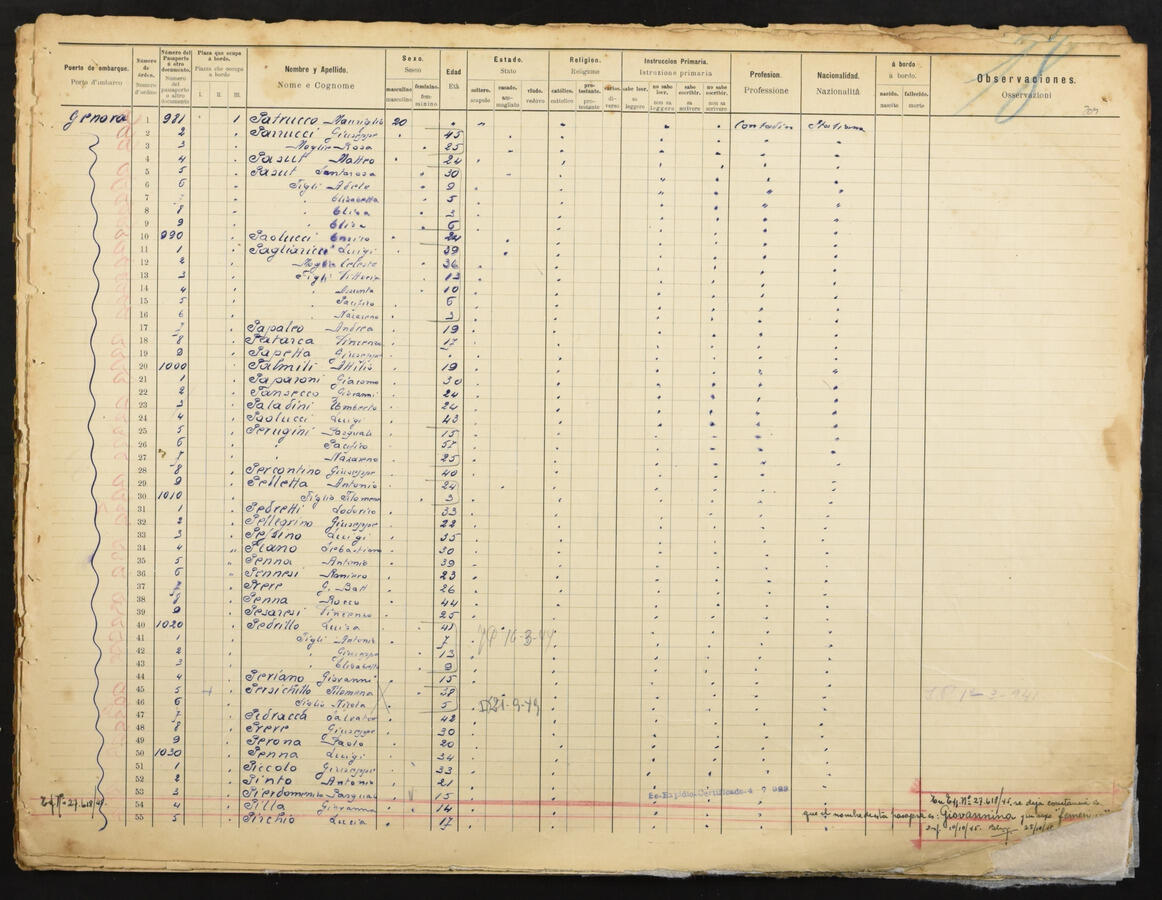 Puerto de embarque. Número de órden. Número del Pasaporte ó otro documento. Plaza que ocupa á bordo. Nombre y Apellido. Sexo. Edad Estado. Religion. Instruccion Primaria. Profesion. Nacionalidad. á bordo Observaciones.
Porto d'imbarco Numero d'ordine Numero del passaporto o altro documento Piazza che occupa a bordo Nome e Cognome Sesso Età Stato Religione Istruzione primaria Professione Nazionalità a bordo. Osservazioni
I. II. III. masculino femenino. soltero. casado. viudo. católico. protestante. sabe leer. no sabe leer. sabe escribir. no sabe escribir. nacido. fallecido.
maschile femminino scapolo ammogliato vedovo cattolico protestante diversi sa leggere non sa leggere sa scrivere non sa scrivere nascito morto
Genova 1 981 1 Patrucco Maurizio 20 Contadin Italiana
2 2 Pannucci Giuseppe 45
3 3 Moglie Rosa 25
4 4 Pasut Matteo 24
5 5 Pasut Santarosa 30
6 6 Figli Adele 9
7 7 Elisabetta 5
8 8 Elisa 3
9 9 Elisa 6
10 990 Paolucci Enrico 24
11 1 Pagliaricci Luigi 39
12 2 Moglie Celeste 36
13 3 Figli Vittoria 13
14 4 Assunta 10
15 5 Pacifico 6
16 6 Nazareno 3
17 7 Papaleo Andrea 19
18 8 Patarca Vincenzo 17
19 9 Papetta Giuseppe
20 1000 Palmili Attilio 19
21 1 Paparoni Giacomo 30
22 2 Pansecco Giovanni 24
23 3 Paladini Umberto 24
24 4 Paolucci Luigi 43
25 5 Perugini Pasquale 15
26 6 Pacifico 57
27 7 Nazareno 25
28 8 Percontino Giuseppe 40
29 9 Pelletta Antonio 24
30 1010 Figlia Filomena 3
31 1 Pedretti Lodovico 33
32 2 Pellegrino Giuseppe 22
33 3 Luigi 35
34 4 Piano Sebastiano 30
35 5 Penna Antonio 39
36 6 Pennesi Raniero 23
37 7 Preve G. Batt 26
38 8 Penna Rocco 44
39 9 Pesaresi Vincenzo 25
40 1020 Pedrillo Luisa 41
41 1 Figli Antonio 7 16-3-44
42 2 Giuseppe 13
43 3 Elisabetta 9
44 4 Periano Giovanni 15
45 5 Persichillo Filomena 38 12-3-941
46 6 Figlio Nicola 5
47 7 Pedracca Salvatore 42
48 8 Preve Giuseppe 30
49 9 Perona Paolo 20
50 1030 Penna Luigi 34
51 1 Piccolo Giuseppe 33
52 2 Pinto Antonio 21
53 3 Pierdomenico Pasquale 15 Se Expidio Certificado
Ex. Nº 27.618/45 54 4 Pilla Giovanna 14 En Ex. Nº 27.618/45. se deja constancia de
55 5 Pirchio Lucia 17 que el nombre de esta pasajera es: Giovannina y su sexo "femenino"
10/10/45.